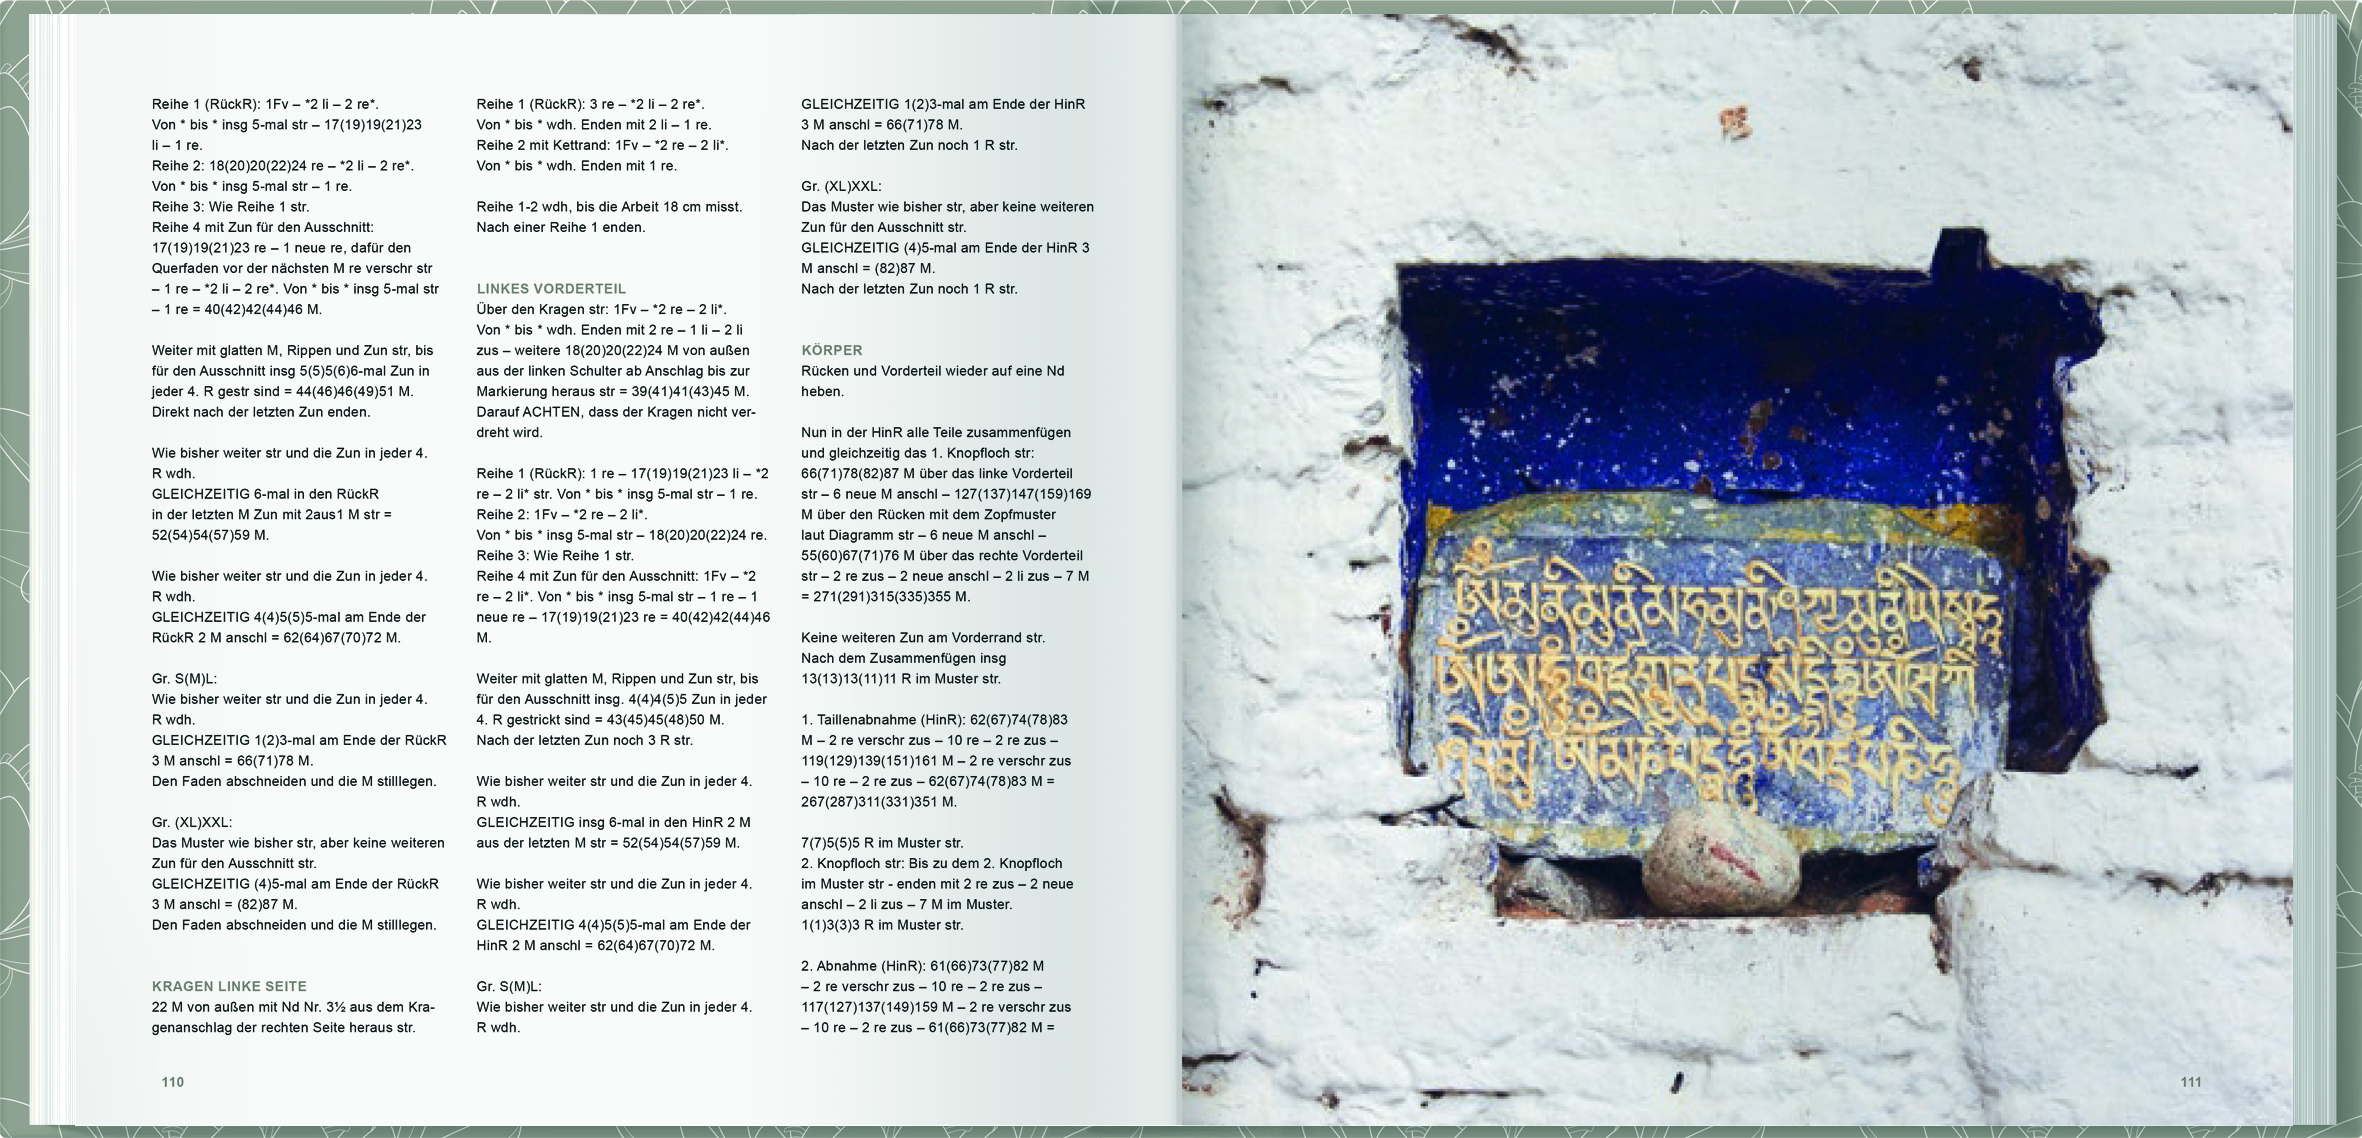 Reihe 1 (RückR): 1Fv – *2 li – 2 re*.
Von * bis * insg 5-mal str – 17(19)19(21)23
li – 1 re.
Reihe 2: 18(20)20(22)24 re – *2 li – 2 re*.
Von * bis * insg 5-mal str – 1 re.
Reihe 3: Wie Reihe 1 str.
Reihe 4 mit Zun für den Ausschnitt:
17(19)19(21)23 re – 1 neue re, dafür den
Querfaden vor der nächsten M re verschr str
– 1 re – *2 li – 2 re*. Von * bis * insg 5-mal str
– 1 re = 40(42)42(44)46 M.
Weiter mit glatten M, Rippen und Zun str, bis
für den Ausschnitt insg 5(5)5(6)6-mal Zun in
jeder 4. R gestr sind = 44(46)46(49)51 M.
Direkt nach der letzten Zun enden.
Wie bisher weiter str und die Zun in jeder 4.
R wdh.
GLEICHZEITIG 6-mal in den RückR
in der letzten M Zun mit 2aus1 M str =
52(54)54(57)59 M.
Wie bisher weiter str und die Zun in jeder 4.
R wdh.
GLEICHZEITIG 4(4)5(5)5-mal am Ende der
RückR 2 M anschl = 62(64)67(70)72 M.
Gr. S(M)L:
Wie bisher weiter str und die Zun in jeder 4.
R wdh.
GLEICHZEITIG 1(2)3-mal am Ende der RückR
3 M anschl = 66(71)78 M.
Den Faden abschneiden und die M stilllegen.
Gr. (XL)XXL:
Das Muster wie bisher str, aber keine weiteren
Zun für den Ausschnitt str.
GLEICHZEITIG (4)5-mal am Ende der RückR
3 M anschl = (82)87 M.
Den Faden abschneiden und die M stilllegen.
KRAGEN LINKE SEITE
22 M von außen mit Nd Nr. 3½ aus dem Kra-
genanschlag der rechten Seite heraus str.
110
Reihe 1 (RückR): 3 re – *2 li – 2 re*.
Von * bis * wdh. Enden mit 2 li – 1 re.
Reihe 2 mit Kettrand: 1Fv – *2 re – 2 li*.
Von * bis * wdh. Enden mit 1 re.
Reihe 1-2 wdh, bis die Arbeit 18 cm misst.
Nach einer Reihe 1 enden.
LINKES VORDERTEIL
Über den Kragen str: 1Fv – *2 re – 2 li*.
Von * bis * wdh. Enden mit 2 re – 1 li – 2 li
zus – weitere 18(20)20(22)24 M von außen
aus der linken Schulter ab Anschlag bis zur
Markierung heraus str = 39(41)41(43)45 M.
Darauf ACHTEN, dass der Kragen nicht ver-
dreht wird.
Reihe 1 (RückR): 1 re – 17(19)19(21)23 li – *2
re – 2 li* str. Von * bis * insg 5-mal str – 1 re.
Reihe 2: 1Fv – *2 re – 2 li*.
Von * bis * insg 5-mal str – 18(20)20(22)24 re.
Reihe 3: Wie Reihe 1 str.
Reihe 4 mit Zun für den Ausschnitt: 1Fv – *2
re – 2 li*. Von * bis * insg 5-mal str – 1 re – 1
neue re – 17(19)19(21)23 re = 40(42)42(44)46
M.
Weiter mit glatten M, Rippen und Zun str, bis
für den Ausschnitt insg. 4(4)4(5)5 Zun in jeder
4. R gestrickt sind = 43(45)45(48)50 M.
Nach der letzten Zun noch 3 R str.
Wie bisher weiter str und die Zun in jeder 4.
R wdh.
GLEICHZEITIG insg 6-mal in den HinR 2 M
aus der letzten M str = 52(54)54(57)59 M.
Wie bisher weiter str und die Zun in jeder 4.
R wdh.
GLEICHZEITIG 4(4)5(5)5-mal am Ende der
HinR 2 M anschl = 62(64)67(70)72 M.
Gr. S(M)L:
Wie bisher weiter str und die Zun in jeder 4.
R wdh.
GLEICHZEITIG 1(2)3-mal am Ende der HinR
3 M anschl = 66(71)78 M.
Nach der letzten Zun noch 1 R str.
Gr. (XL)XXL:
Das Muster wie bisher str, aber keine weiteren
Zun für den Ausschnitt str.
GLEICHZEITIG (4)5-mal am Ende der HinR 3
M anschl = (82)87 M.
Nach der letzten Zun noch 1 R str.
KÖRPER
Rücken und Vorderteil wieder auf eine Nd
heben.
Nun in der HinR alle Teile zusammenfügen
und gleichzeitig das 1. Knopfloch str:
66(71)78(82)87 M über das linke Vorderteil
str – 6 neue M anschl – 127(137)147(159)169
M über den Rücken mit dem Zopfmuster
laut Diagramm str – 6 neue M anschl –
55(60)67(71)76 M über das rechte Vorderteil
str – 2 re zus – 2 neue anschl – 2 li zus – 7 M
= 271(291)315(335)355 M.
Keine weiteren Zun am Vorderrand str.
Nach dem Zusammenfügen insg
13(13)13(11)11 R im Muster str.
1. Taillenabnahme (HinR): 62(67)74(78)83
M – 2 re verschr zus – 10 re – 2 re zus –
119(129)139(151)161 M – 2 re verschr zus
– 10 re – 2 re zus – 62(67)74(78)83 M =
267(287)311(331)351 M.
7(7)5(5)5 R im Muster str.
2. Knopfloch str: Bis zu dem 2. Knopfloch
im Muster str - enden mit 2 re zus – 2 neue
anschl – 2 li zus – 7 M im Muster.
1(1)3(3)3 R im Muster str.
2. Abnahme (HinR): 61(66)73(77)82 M
– 2 re verschr zus – 10 re – 2 re zus –
117(127)137(149)159 M – 2 re verschr zus
– 10 re – 2 re zus – 61(66)73(77)82 M =
111